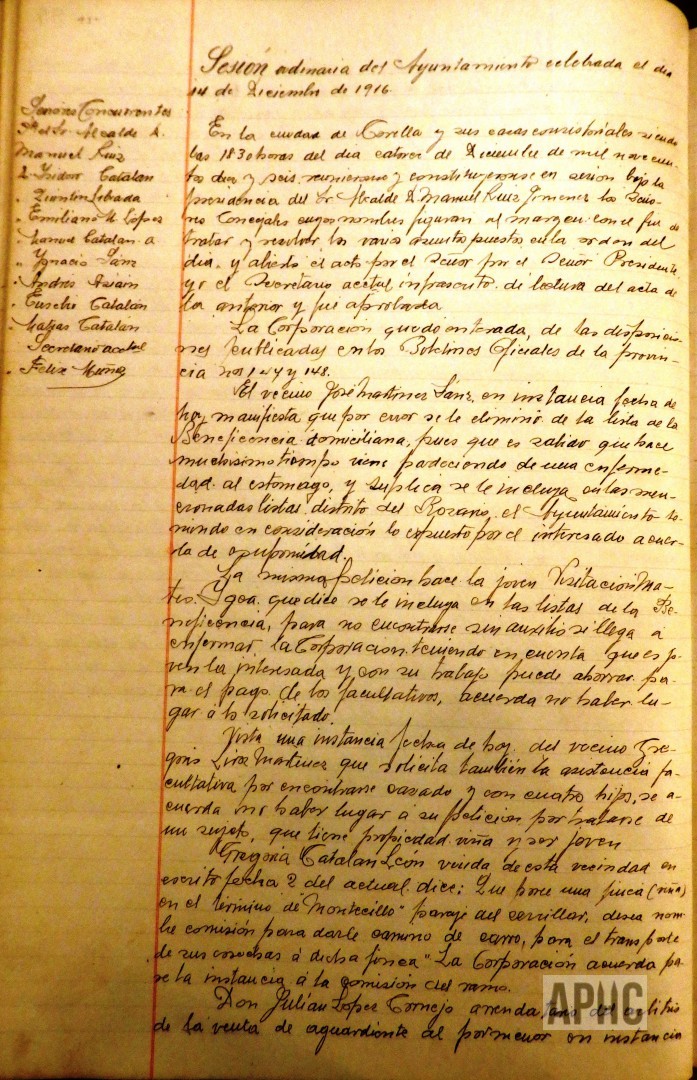 Sesión ordinaria del Ayuntamiento celebrada el dia
14 de Diciembre de 1916.
Señores Concurrentes
Pdte Sr. Alcalde D.
Manuel Ruiz
D. Isidoro Catalán
" Quintin Lebrada
" Emiliano M. Lopez
" Manuel Catalan a
" Ygnacio Sánz
" Andres Ayam
" Eusebio Catalán
" Matias Catalan
Secretario acctal
" Felix Muñoz
En la ciudad de Corella y sus casas consistoriales siendo
las 18 30 horas del dia catorce de Diciembre de mil novecien-
tos diez y seis, reunieronse y constituyeronse en sesion bajo la
presidencia del Sr Alcalde D. Manuel Ruiz Jimenez los Seño-
res Concejales cuyos nombres figuran al margen con el fin de
tratar y resolver los varios asuntos puestos en la orden del
dia, y abierto el acto por el Señor por el Señor Presidente
yo el Secretario acctal infrascrito di lectura del acta de
la anterior y fué aprobada.
La Corporacion quedo enterada, de las disposicio-
nes publicadas en los Boletines Oficiales de la provin-
cia nos 147 y 148.
El vecino José Martinez Sánz, en instancia fecha de
hoy manifiesta que por error se le elimino de la lista de la
Beneficencia domiciliaria, pues que es sabido que hace
muchisimo tiempo viene padeciendo de una enferme-
dad al estomago, y suplica se le incluya en las men-
cionadas listas, distrito del Rosario, el Ayuntamiento to-
mando en consideración lo expuesto por el interesado acuer-
da de conformidad.
La misma peticion hace la joven Visitación Ma-
teo Ygea, que dice se le incluya en las listas de la Be-
neficencia, para no encontrarse sin auxilio si llega a
enfermar, la Corporacion teniendo en cuenta que es jo-
ven la interesada y con su trabajo puede ahorrar pa-
ra el pago de los facultativos, acuerda no haber lu-
gar á lo solicitado.
Vista una instancia fecha de hoy, del vecino Gre-
gorio Martinez que solicita también la asistencia fa-
cultativa por encontrarse casado y con cuatro hijos, se a-
cuerda no haber lugar á su peticion por tratarse de
un sujeto, que tiene propiedad viña y ser joven
Gregoria Catalan León viuda de esta vecindad en
escrito fecha 2 del actual dice: Que posee una finca (viña)
en el término de "Montecillo" paraje del cerrillar, desea nom-
bre comisión para darle camino de carro, para el transporte
de sus cosechas á dicha finca" La Corporación acuerda pa-
se la instancia á la comisión del ramo.
Don Julián Lopez Cornejo arrendatario del arbitrio
de la venta de aguardiente al pormenor en instancia
APHC